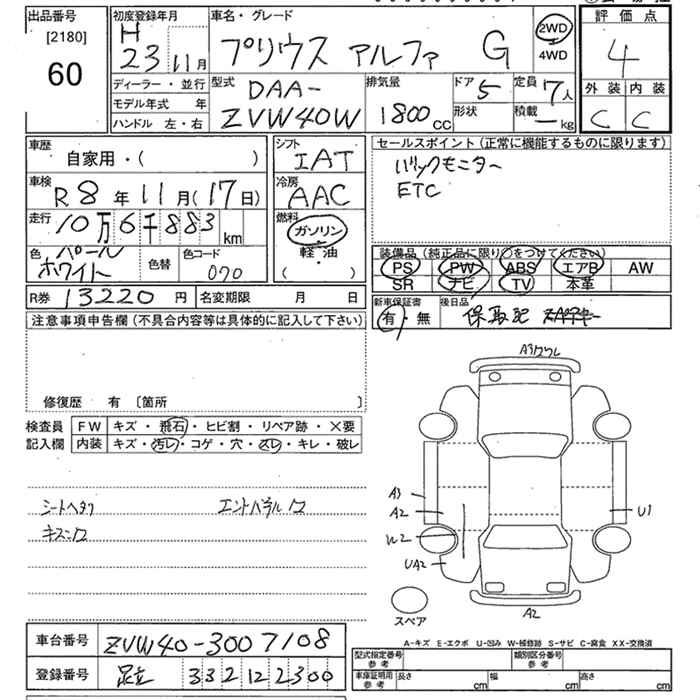 出品番号
[2180]
60
初度登録年月
H
23 11月
ディーラー・並行
モデル年式 年
ハンドル 左・右
車名・グレード
プリウス アルファ G
2WD
4WD
評価点
4
外装 内装
C C
型式
DAA-
ZVW40W
排気量
1800CC
ドア 5
形状
定員 7人
積載 ― kg
車歴
自家用・( )
車検
R8年11月(17日)
走行
10万6千883km
色 パール
ホワイト
色替
色コード
070
R券 13220円 名変期限 月 日
シフト
IAT
冷房
AAC
燃料
ガソリン
軽・油
( )
セールスポイント(正常に機能するものに限ります)
バックモニター
ETC
装備品(純正品に限り○をつけてください)
PS PW ABS エアB AW
SR ナビ TV 本革
新車保証書
有・無
後日品
保取記
注意事項申告欄(不具合内容等は具体的に記入して下さい)
修復歴 有〔箇所 〕
検査員
記入欄
FW キズ・飛石・ヒビ割・リペア跡・×要
内装 キズ・汚レ・コゲ・穴・スレ・キレ・破レ
シートヘタリ
キズ
A3
A2
W2
UA2
U1
A2
スペア
A-キズ E-エクボ U-凹み W-補修跡 S-サビ C-腐食 XX-交換済
車台番号 ZVW40-3007108
登録番号 足立 332 122300
型式指定番号
参考
類別区分番号
参考
車庫証明用
参考
長さ cm 幅 cm 高さ cm